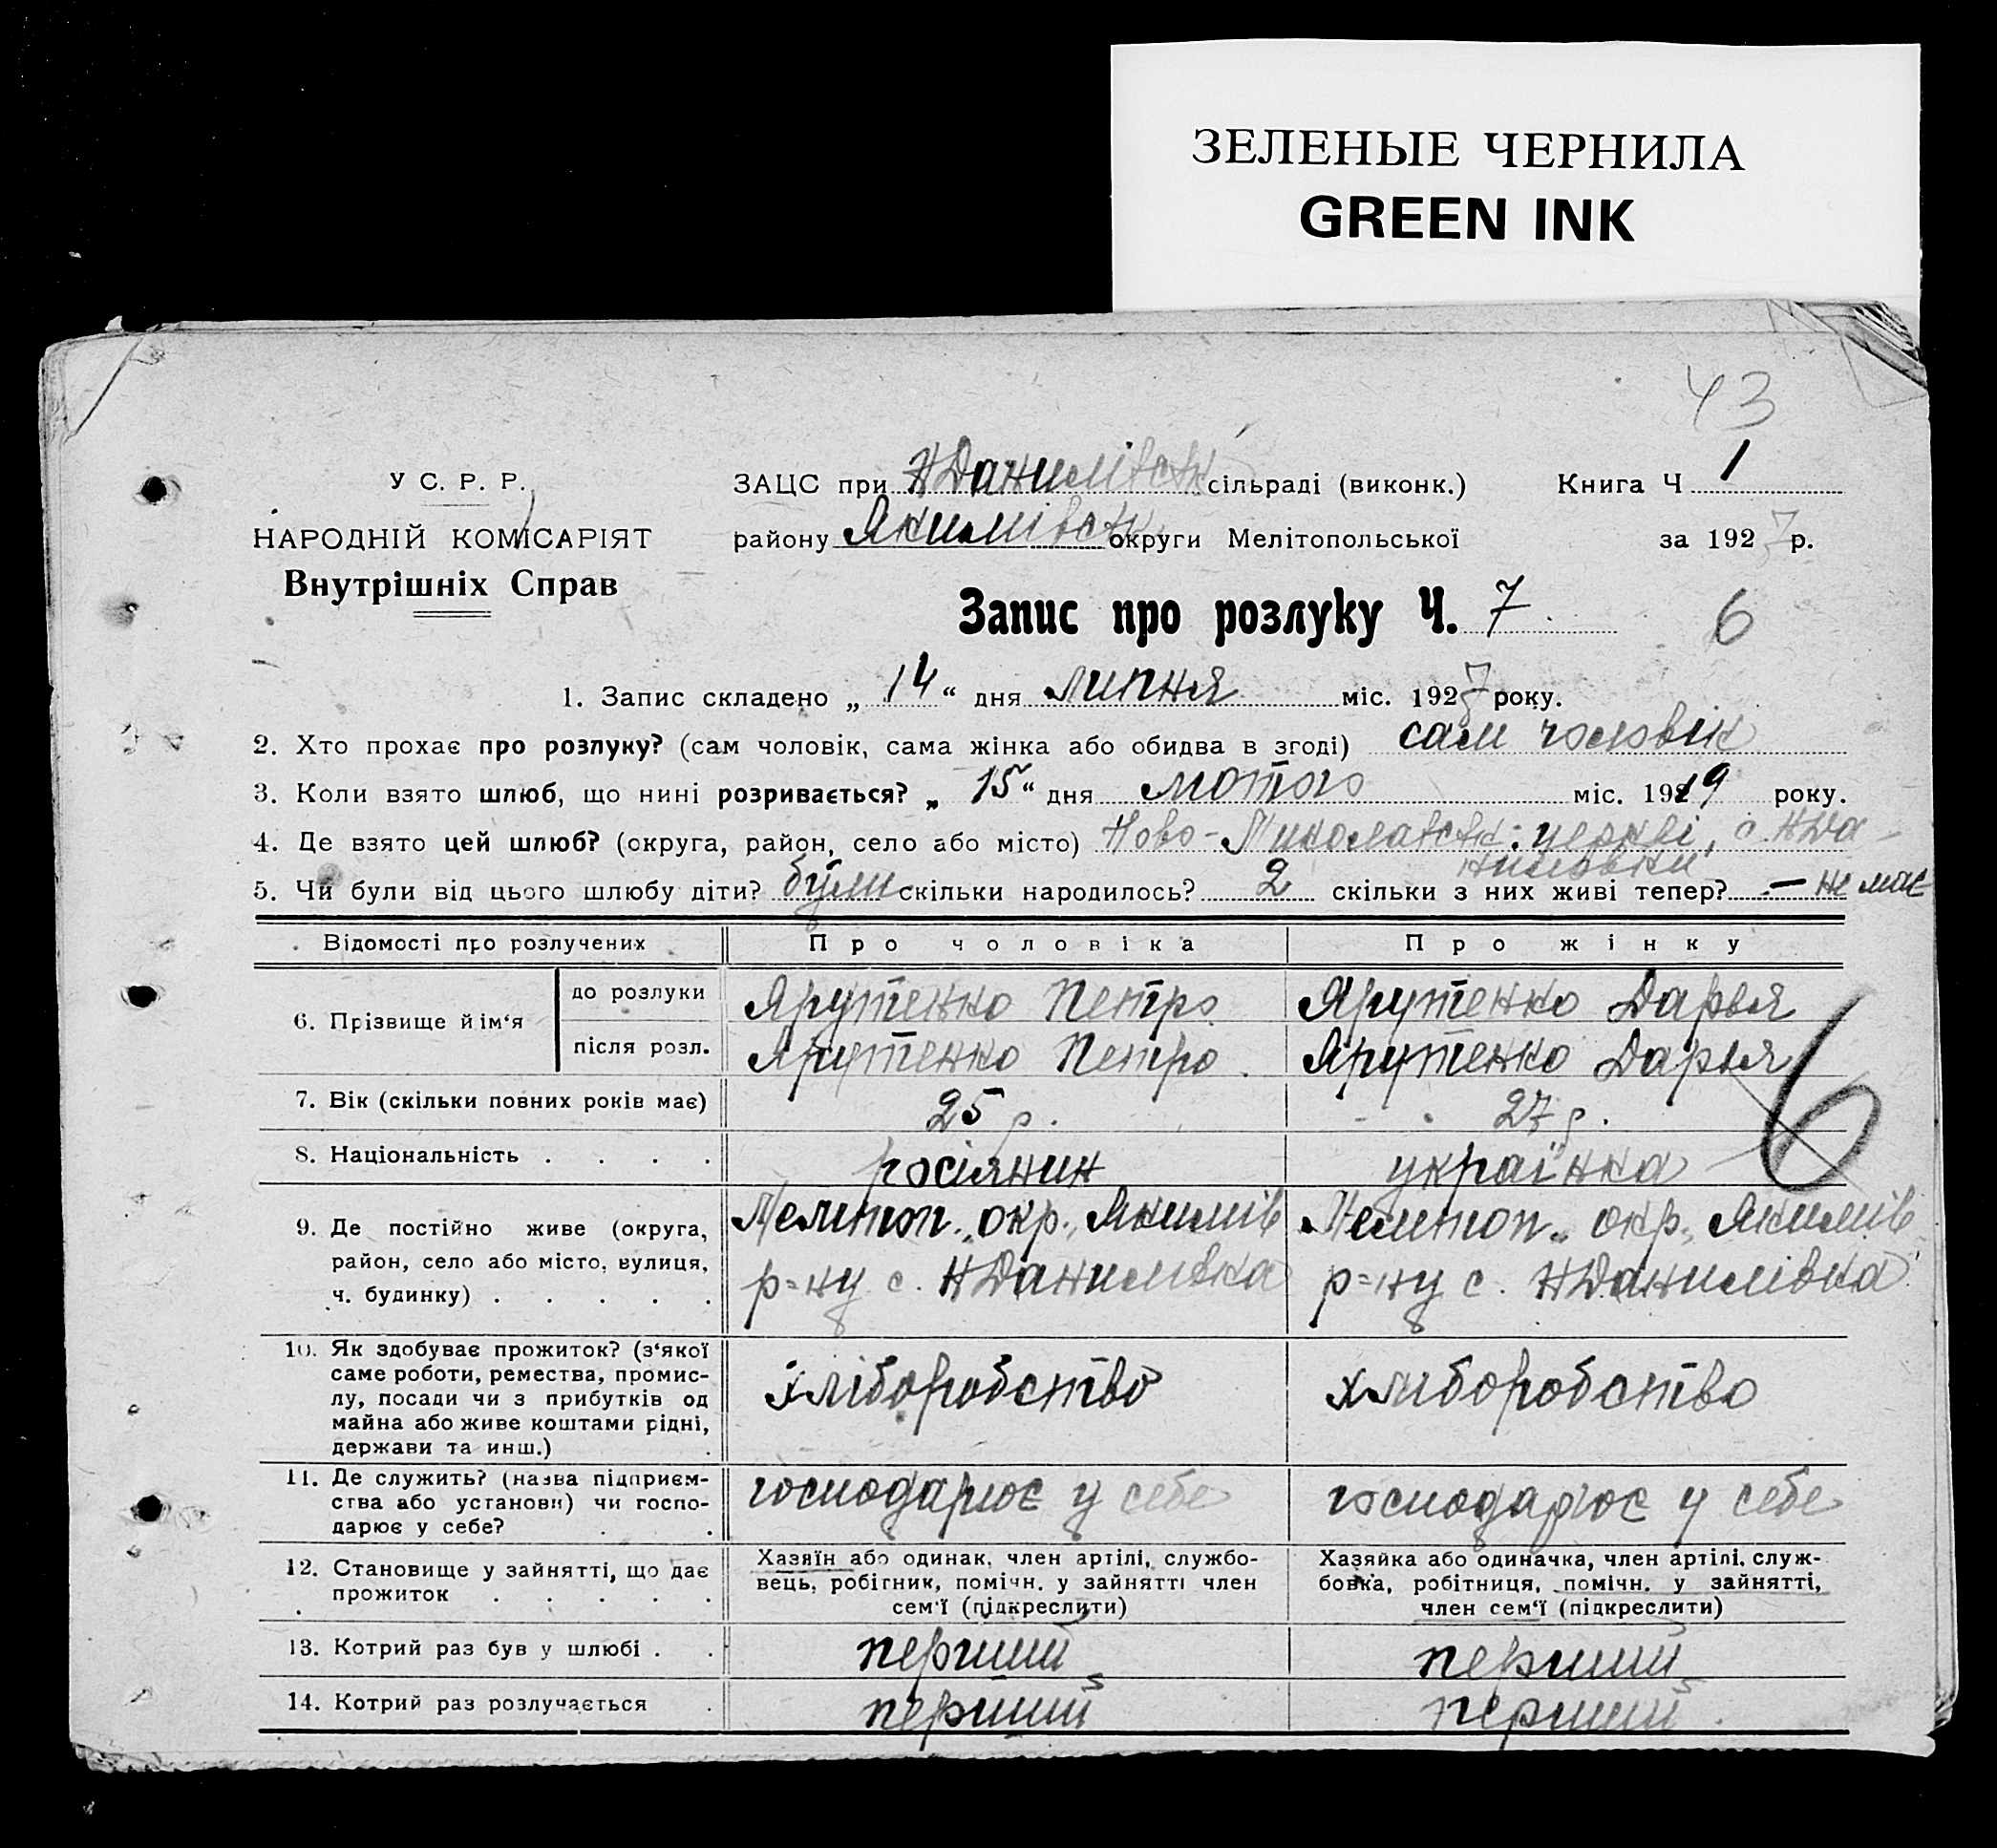 ЗЕЛЕНЫЕ ЧЕРНИЛА
GREEN INK
43
У С. Р. Р.
НАРОДНІЙ КОМІСАРІЯТ
Внутрішніх Справ
ЗАЦС при НДанилівськ сільраді (виконк.) Книга Ч 1
району Якимівськ округи Мелітопольської за 1927 р.
Запис про розлуку Ч. 7 6
1. Запис складено „ 14 “ дня липня міс. 1927 року.
2. Хто прохає про розлуку? (сам чоловік, сама жінка або обидва в згоді) сам чоловік
3. Коли взято шлюб, що нині розривається? „ 15 “ дня лютого міс. 1919 року.
4. Де взято цей шлюб? (округа, район, село або місто) Ново-Миколаевськ. церкві, с. НДа-
нилівки
5. Чи були від цього шлюбу діти? були скільки народилось? 2 скільки з них живі тепер? — не має
Відомості про розлучених Про чоловіка Про жінку
6. Прізвище й ім‘я до розлуки Ярутенко Петро Ярутенко Дарья
після розл. Ярутенко Петро. Ярутенко Дарья
6
7. Вік (скільки повних років має) 25 р. 27 р.
8. Національність . . . . росіянин українка
9. Де постійно живе (округа, район, село або місто, вулиця, ч. будинку) . . . . .
Мелитоп. окр., Якимів
р=ну с. НДанилівка
Мелитоп. окр., Якимів
р=ну с. НДанилівка
10. Як здобуває прожиток? (з‘якої
саме роботи, ремества, промис-
лу, посади чи з прибутків од
майна або живе коштами рідні,
держави та инш.) .
хліборобство хлиборобство
11. Де служить? (назва підприєм-
ства або установи) чи госпо-
дарює у себе? . .
господарює у себе господарює у себе
12. Становище у зайнятті, що дає
прожиток . . . . .
Хазяїн або одинак, член артілі, службо-
вець, робігник, помічн. у зайнятті член
сем‘ї (підкреслити)
Хазяйка або одиначка, член артілі, служ-
бовка, робітниця, помічн. у зайнятті,
член сем‘ї (підкреслити)
13. Котрий раз був у шлюбі . . перший перший
14. Котрий раз розлучається . перший перший.